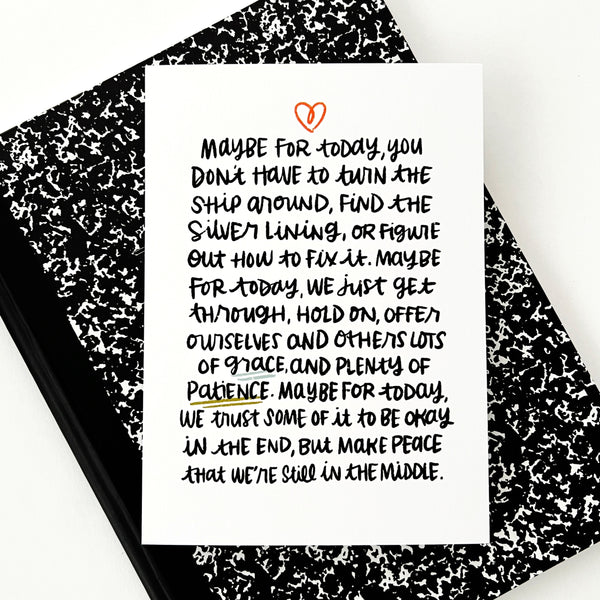 MAYBE FOR tODAY, YOU
DON't HAVE tO tURN tHE
SHIP AROUND, FIND tHE
SILVER LINING, OR FIGURE
OUt HOW tO FIX It. MAYBE
FOR tODAY, WE JUSt GEt
tHROUGH, HOLD ON, OFFER
OURSELVES AND OtHERS LOtS
OF GRACE, AND PLENtY OF
PAtIENCE. MAYBE FOR tODAY,
WE tRUSt SOME OF It tO BE OKAY
IN tHE END, BUt MAKE PEACE
tHAt WE'RE StILL IN tHE MIDDLE.